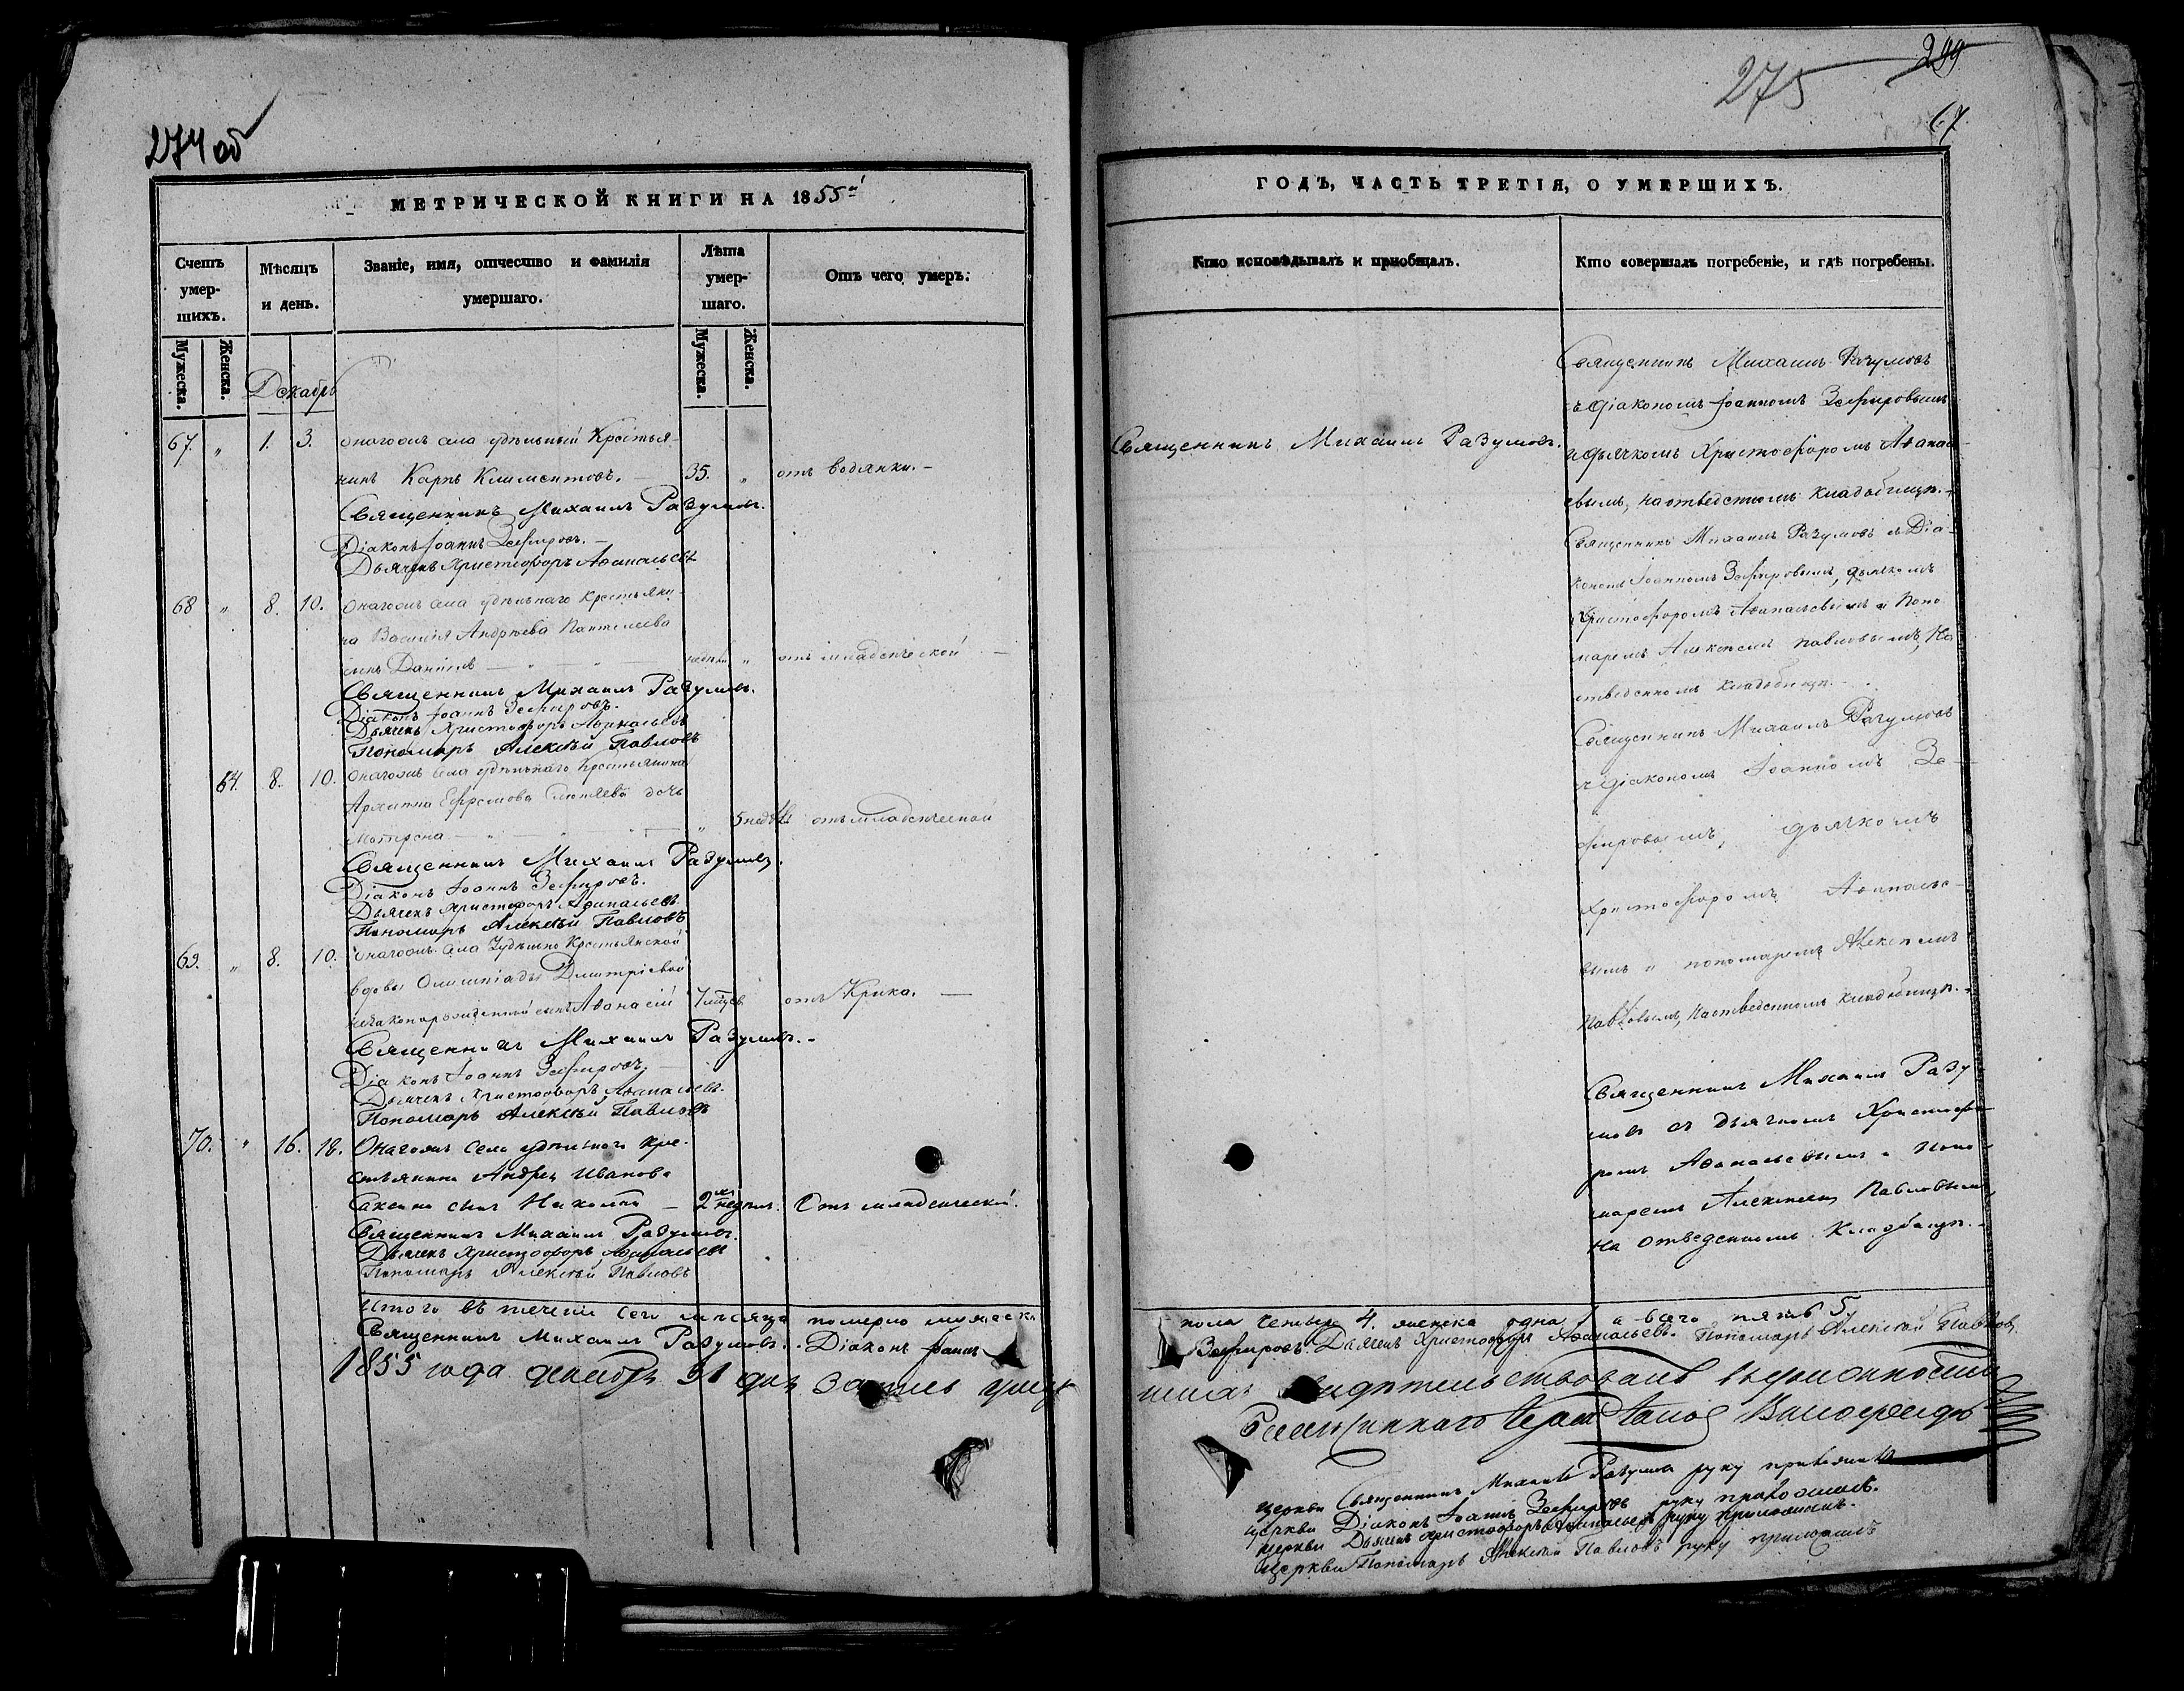 274 об
МЕТРИЧЕСКОЙ КНИГИ НА 1855й
Счетъ умершихъ.
Мѣсяцъ и день.
Званіе, имя, отчество и фамилія умершаго.
Лѣта умершаго.
Отъ чего умеръ.
Мужеска.
Женска.
Мужеска.
Женска.
Декабрь
67. " 1. 3. Онагожъ села удѣльный Крестья-
нинъ Карпъ Климентовъ. — 35. " отъ водянки. —
Священникъ Михаилъ Разумовъ.
Діаконъ Іоаннъ Зефировъ. —
Дьячекъ Христофоръ Аѳанасьевъ
68 " 8. 10. Онагожъ села удѣльнаго крестьяни-
на Василія Андреева Пантелеева
сынъ Даніилъ — " — " — недѣли " отъ младенческой —
Священникъ Михаилъ Разумовъ.
Діаконъ Іоаннъ Зефировъ.
Дьячекъ Христофоръ Аѳанасьевъ
Пономарь Алексѣй Павловъ
64. 8. 10. Онагожъ села удѣльнаго Крестьянина
Архиппа Ефремова дочь
Матрена — " — " — " 5 недѣль отъ младенческой
Священникъ Михаилъ Разумовъ.
Діаконъ Іоаннъ Зефировъ.
Дьячекъ Христофоръ Аѳанасьевъ
Пономарь Алексѣй Павловъ
69. " 8. 10. Онагожъ села Удѣльной Крестьянской
вдовы Олимпіады Димтріевой
незаконорожденный сынъ Аѳанасій 7 отъ Крика. —
Священникъ Михаилъ Разумовъ. -
Діаконъ Іоаннъ Зефировъ. —
Дьячекъ Христофоръ Аѳанасьевъ.
Пономарь Алексѣй Павловъ
70. " 16. 18. Онагожъ села удѣльнаго кре-
стьянина Андрея Иванова
сынъ Николай — 2хъ недѣль. Отъ младенческой.
Священникъ Михаилъ Разумовъ.
Дьячекъ Христофоръ Аѳанасьевъ
Пономарь Алексѣй Павловъ
Итого въ теченіи сего мѣсяца померло мужеска
Священникъ Михаилъ Разумовъ. Діаконъ Іоаннъ
1855 года декабря 31 дня запись
275
299
67
ГОДЪ, ЧАСТЬ ТРЕТІЯ, О УМЕРШИХЪ.
Кто исповѣдывалъ и пріобщалъ.
Кто совершалъ погребеніе, и гдѣ погребены.
Священникъ Михаилъ Разумовъ.
Священникъ Михаилъ Разумовъ
съ діакономъ Іоанномъ Зефировымъ
и дьячкомъ Христофоромъ Аѳанась-
евымъ, на отведенномъ кладбищѣ. -
Священникъ Михаилъ Разумовъ съ Діа-
кономъ Іоанномъ Зефировымъ, дьячкомъ
Христофоромъ Аѳанасьевымъ и Поно-
маремъ Алексѣемъ Павловымъ, На
отведенномъ кладбищѣ. -
Священникъ Михаилъ Разумовъ
съ діакономъ Іоанномъ Зе-
фировымъ, дьячкомъ
Христофоромъ Аѳанасье-
вымъ и пономаремъ Алексѣемъ
Павловымъ, На отведенномъ кладбищѣ. -
Священникъ Михаилъ Разу-
мовъ съ дьячкомъ Христофо-
ромъ Аѳанасьевымъ и поно-
маремъ Алексѣемъ Павловымъ,
на отведенномъ Кладбищѣ. -
пола четыре 4. женска одна 1 а всего пять 5
Зефировъ. Дьячекъ Христофоръ Аѳанасьевъ. Пономарь Алексѣй Павловъ.
свидѣтельствовалъ
церкви Священникъ Михаилъ Разумовъ руку приложилъ
церкви Діаконъ Іоаннъ Зефировъ руку приложилъ.
церкви Дьячекъ Христофоръ Аѳанасьевъ руку приложилъ.
церкви Пономарь Алексѣй Павловъ руку приложилъ